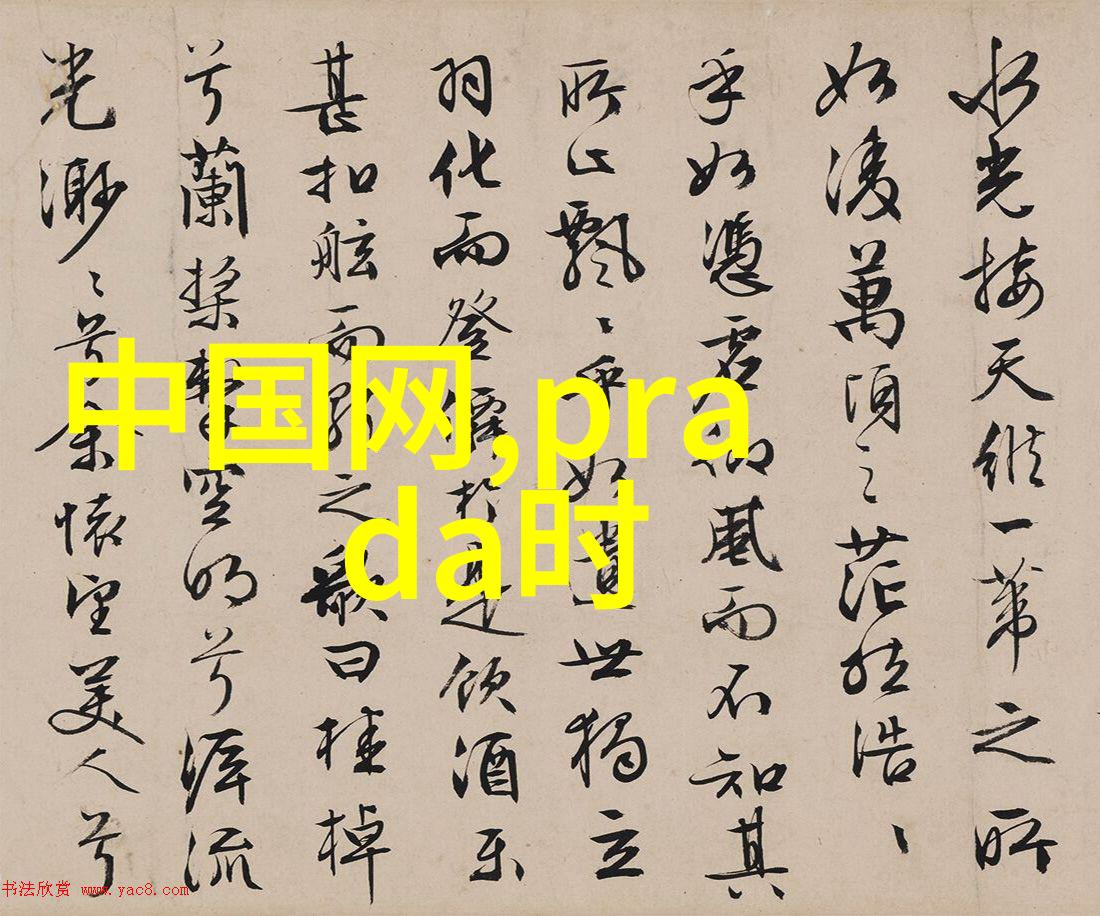 水光接天縱一葦之所
如凌萬頃之茫然浩ヽ
乎如憑虛御風而不知其
所止飄ヽ乎如遺世獨立
羽化而登僊於是飲酒樂
甚扣舷而歌之歌曰桂棹
兮蘭槳擊空明兮泝流
光渺ヽ兮余懷望美人兮
中国网,pra
da时
书法欣赏 www.yac8.com